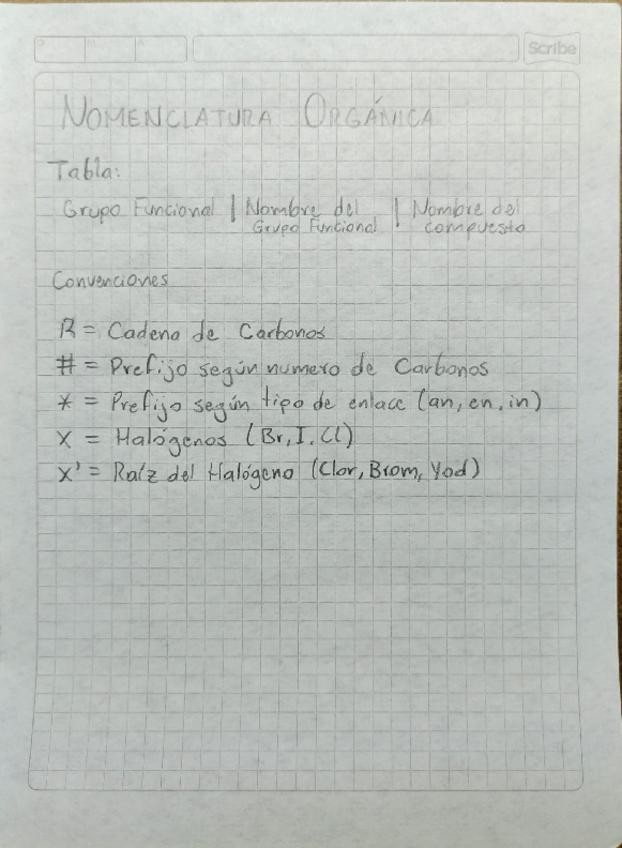 D M A Scribe
NOMENCLATURA ORGÁNICA
Tabla:
Grupo Funcional | Nombre del | Nombre del
Grupo Funcional compuesto
Convenciones
R = Cadena de Carbonos
# = Prefijo según numero de Carbonos
* = Prefijo según tipo de enlace (an, en, in)
X = Halógenos (Br, I, Cl)
X' = Raíz del Halógeno (Clor, Brom, Yod)